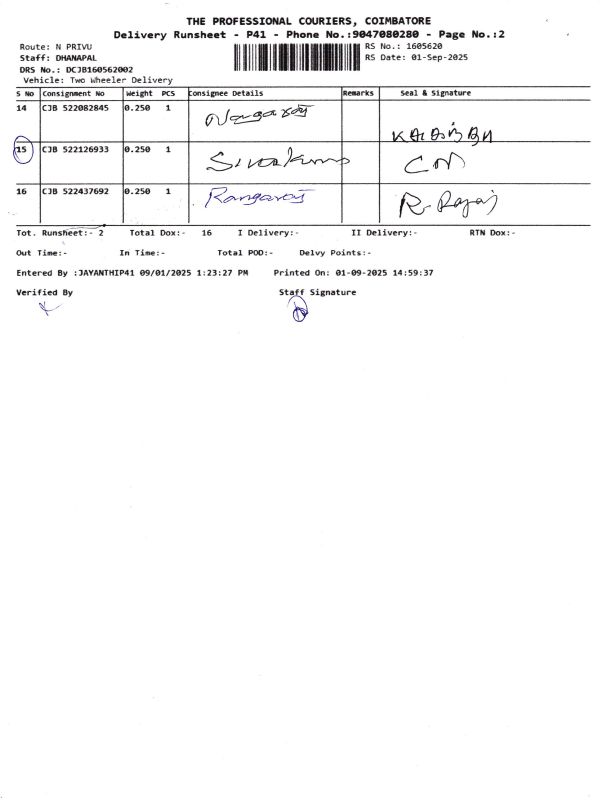 THE PROFESSIONAL COURIERS, COIMBATORE
Delivery Runsheet - P41 - Phone No.:9047080280 - Page No.:2
Route: N PRIVU
RS No.: 1605620
Staff: DHANAPAL
RS Date: 01-Sep-2025
DRS No.: DCJB160562002
Vehicle: Two Wheeler Delivery
S No Consignment No Weight PCS Consignee Details Remarks Seal & Signature
14 CJB 522082845 0.250 1 Nangaraj
15 CJB 522126933 0.250 1 Sivakumo
16 CJB 522437692 0.250 1 Rangaraj R. Rajaj
Tot. Runsheet:- 2 Total Dox:- 16 I Delivery:- II Delivery:- RTN Dox:-
Out Time:- In Time:- Total POD:- Delvy Points:-
Entered By :JAYANTHIP41 09/01/2025 1:23:27 PM Printed On: 01-09-2025 14:59:37
Verified By Staff Signature